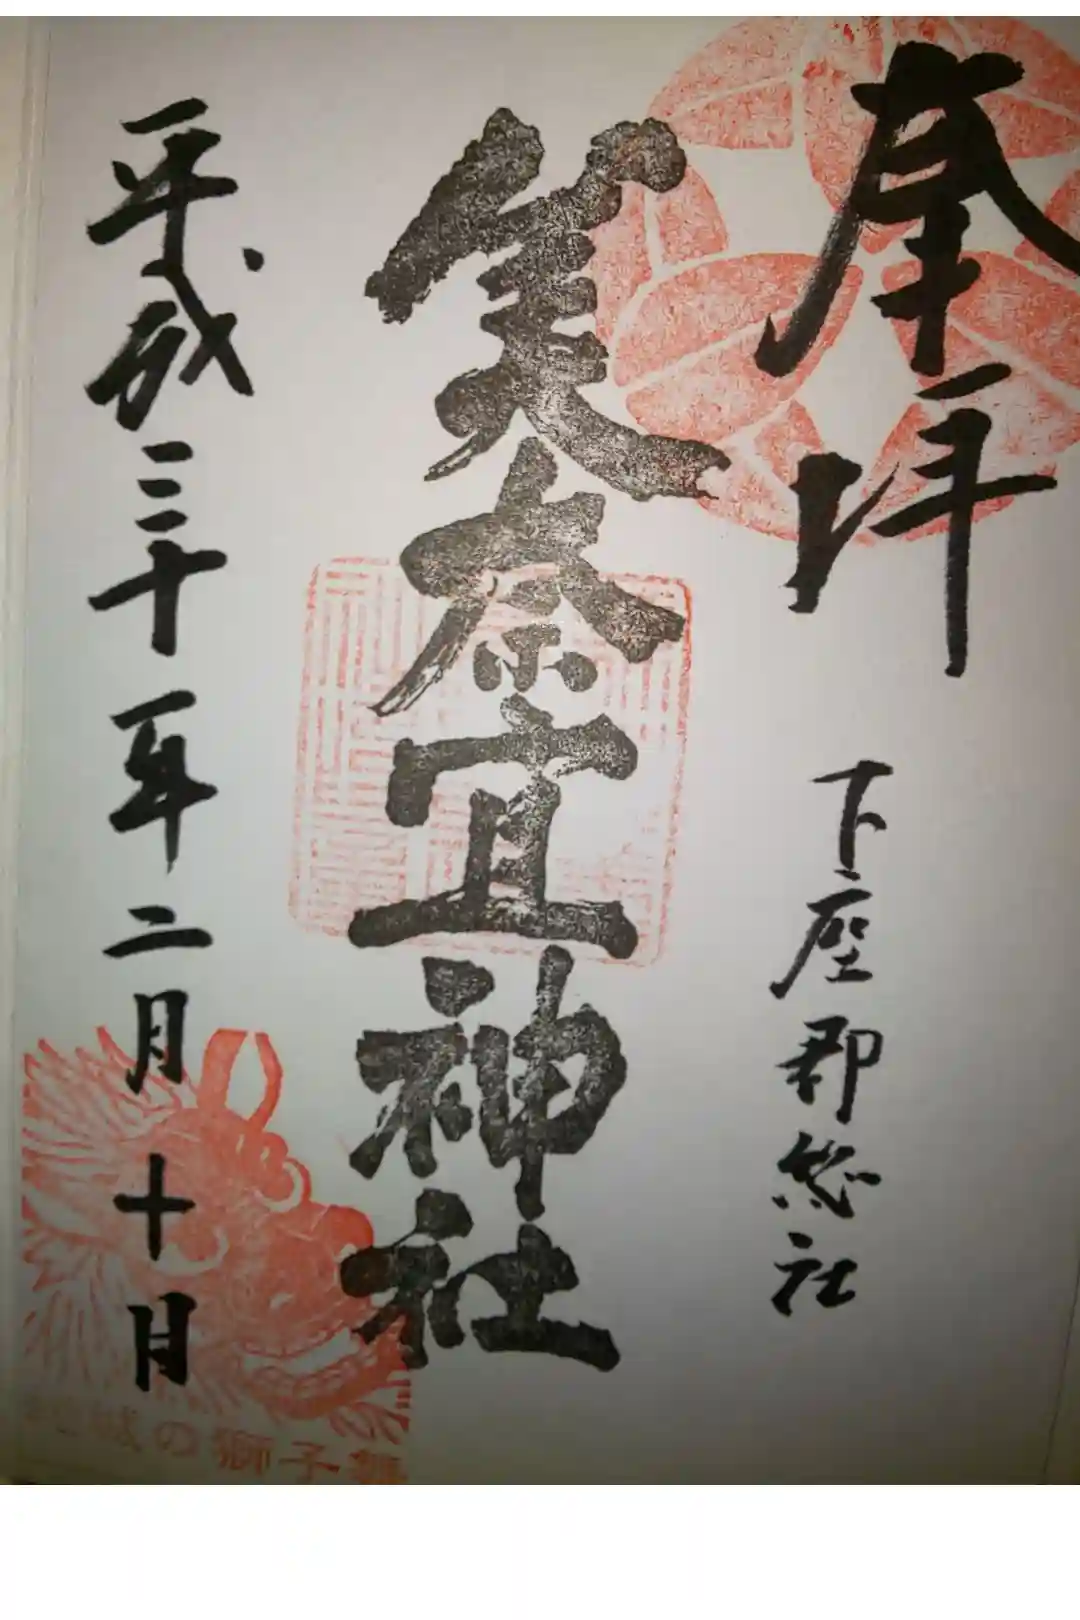 奉拝
下座郡総社
美奈宜神社
平成三十年二月十日
の獅子舞